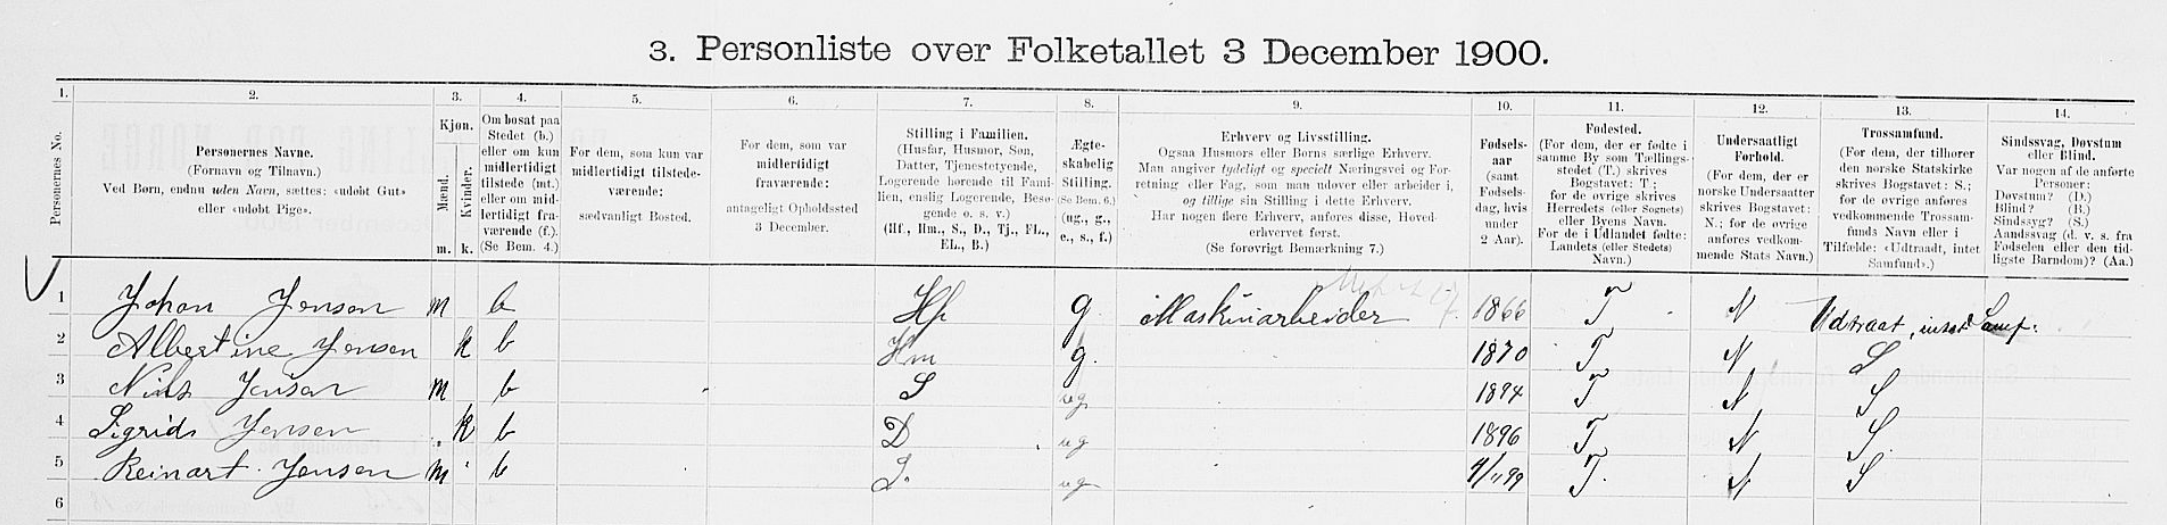 3. Personliste over Folketallet 3 December 1900.
1. 2. 3. 4. 5. 6. 7. 8. 9. 10. 11. 12. 13. 14.
Personernes No.
Personernes Navne.
(Fornavn og Tilnavn.)
Ved Børn, endnu uden Navn, sættes: «udøbt Gut»
eller «udøbt Pige».
Kjøn.
Mænd.
Kvinder.
m. k.
Om bosat paa
Stedet (b.)
eller om kun
midlertidigt
tilstede (mt.)
eller om mid-
lertidigt fra-
værende (f.).
(Se Bem. 4.)
For dem, som kun var
midlertidigt tilstede-
værende:
sædvanligt Bosted.
For dem, som var
midlertidigt
fraværende:
antageligt Opholdssted
3 December.
Stilling i Familien.
(Husfar, Husmor, Søn,
Datter, Tjenestetyende,
Logerende hørende til Fami-
lien, enslig Logerende, Besø-
gende o. s. v.)
(Hf., Hm., S., D., Tj., FL.,
EL., B.)
Ægte-
skabelig
Stilling.
(Se Bem. 6.)
(ug., g.,
e., s., f.)
Erhverv og Livsstilling.
Ogsaa Husmors eller Børns særlige Erhverv.
Man angiver tydeligt og specielt Næringsvei og For-
retning eller Fag, som man udøver eller arbeider i,
og tillige sin Stilling i dette Erhverv.
Har nogen flere Erhverv, anføres disse, Hoved-
erhvervet først.
(Se forøvrigt Bemærkning 7.)
Fødsels-
aar
(samt
Fødsels-
dag, hvis
under
2 Aar).
Fødested.
(For dem, der er fødte i
samme By som Tællings-
stedet (T.) skrives
Bogstavet: T;
for de øvrige skrives
Herredets (eller Sognets)
eller Byens Navn.
For de i Udlandet fødte:
Landets (eller Stedets)
Navn.)
Undersaatligt
Forhold.
(For dem, der er
norske Undersaatter
skrives Bogstavet:
N.; for de øvrige
anføres vedkom-
mende Stats Navn.)
Trossamfund.
(For dem, der tilhører
den norske Statskirke
skrives Bogstavet: S.;
for de øvrige anføres
vedkommende Trossam-
funds Navn eller i
Tilfælde: «Udtraadt, intet
Samfund».)
Sindssvag, Døvstum
eller Blind.
Var nogen af de anførte
Personer:
Døvstum? (D.)
Blind? (B.)
Sindssyg? (S.)
Aandssvag (d. v. s. fra
Fødselen eller den tid-
ligste Barndom)? (Aa.)
1 Johan Jensen m b Hf g. Maskinarbeider 1866 T N Udtraat, intet Samf.
2 Albertine Jensen k b Hm g. 1870 T N S
3 Nils Jensen m b S ug 1894 T N S
4 Sigrid Jensen k b D ug 1896 T N S.
5 Reinart Jensen m b S. ug 4/11 99 T. N S
6